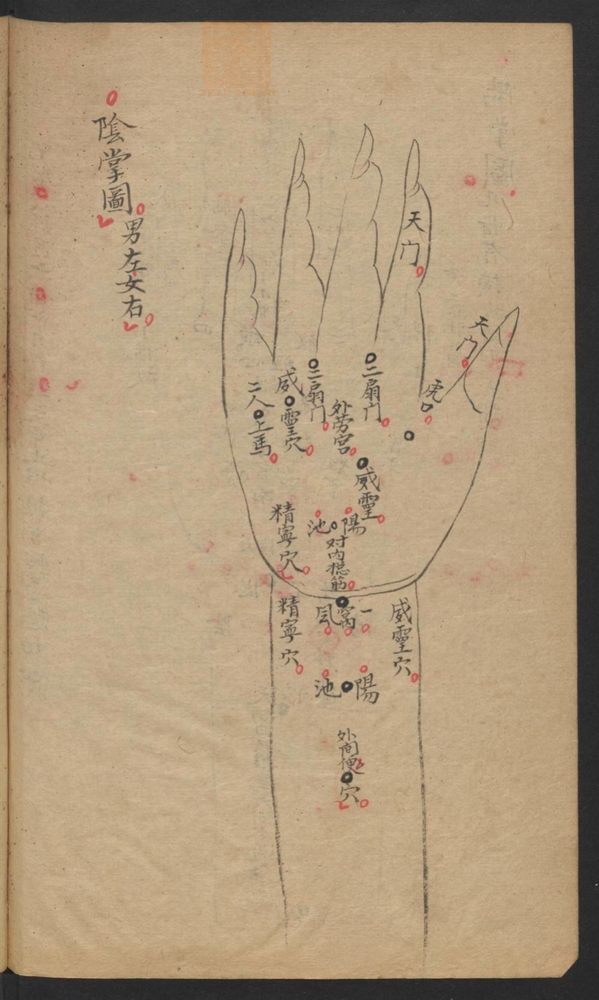 陰掌圖
男左女右
天门
天门
虎口
二扇门
二扇门
外劳宫
威靈穴
二人上馬
威靈
陽池
对内捴筋
精寧穴
一窩风
精寧穴
威靈穴
陽池
外间使穴